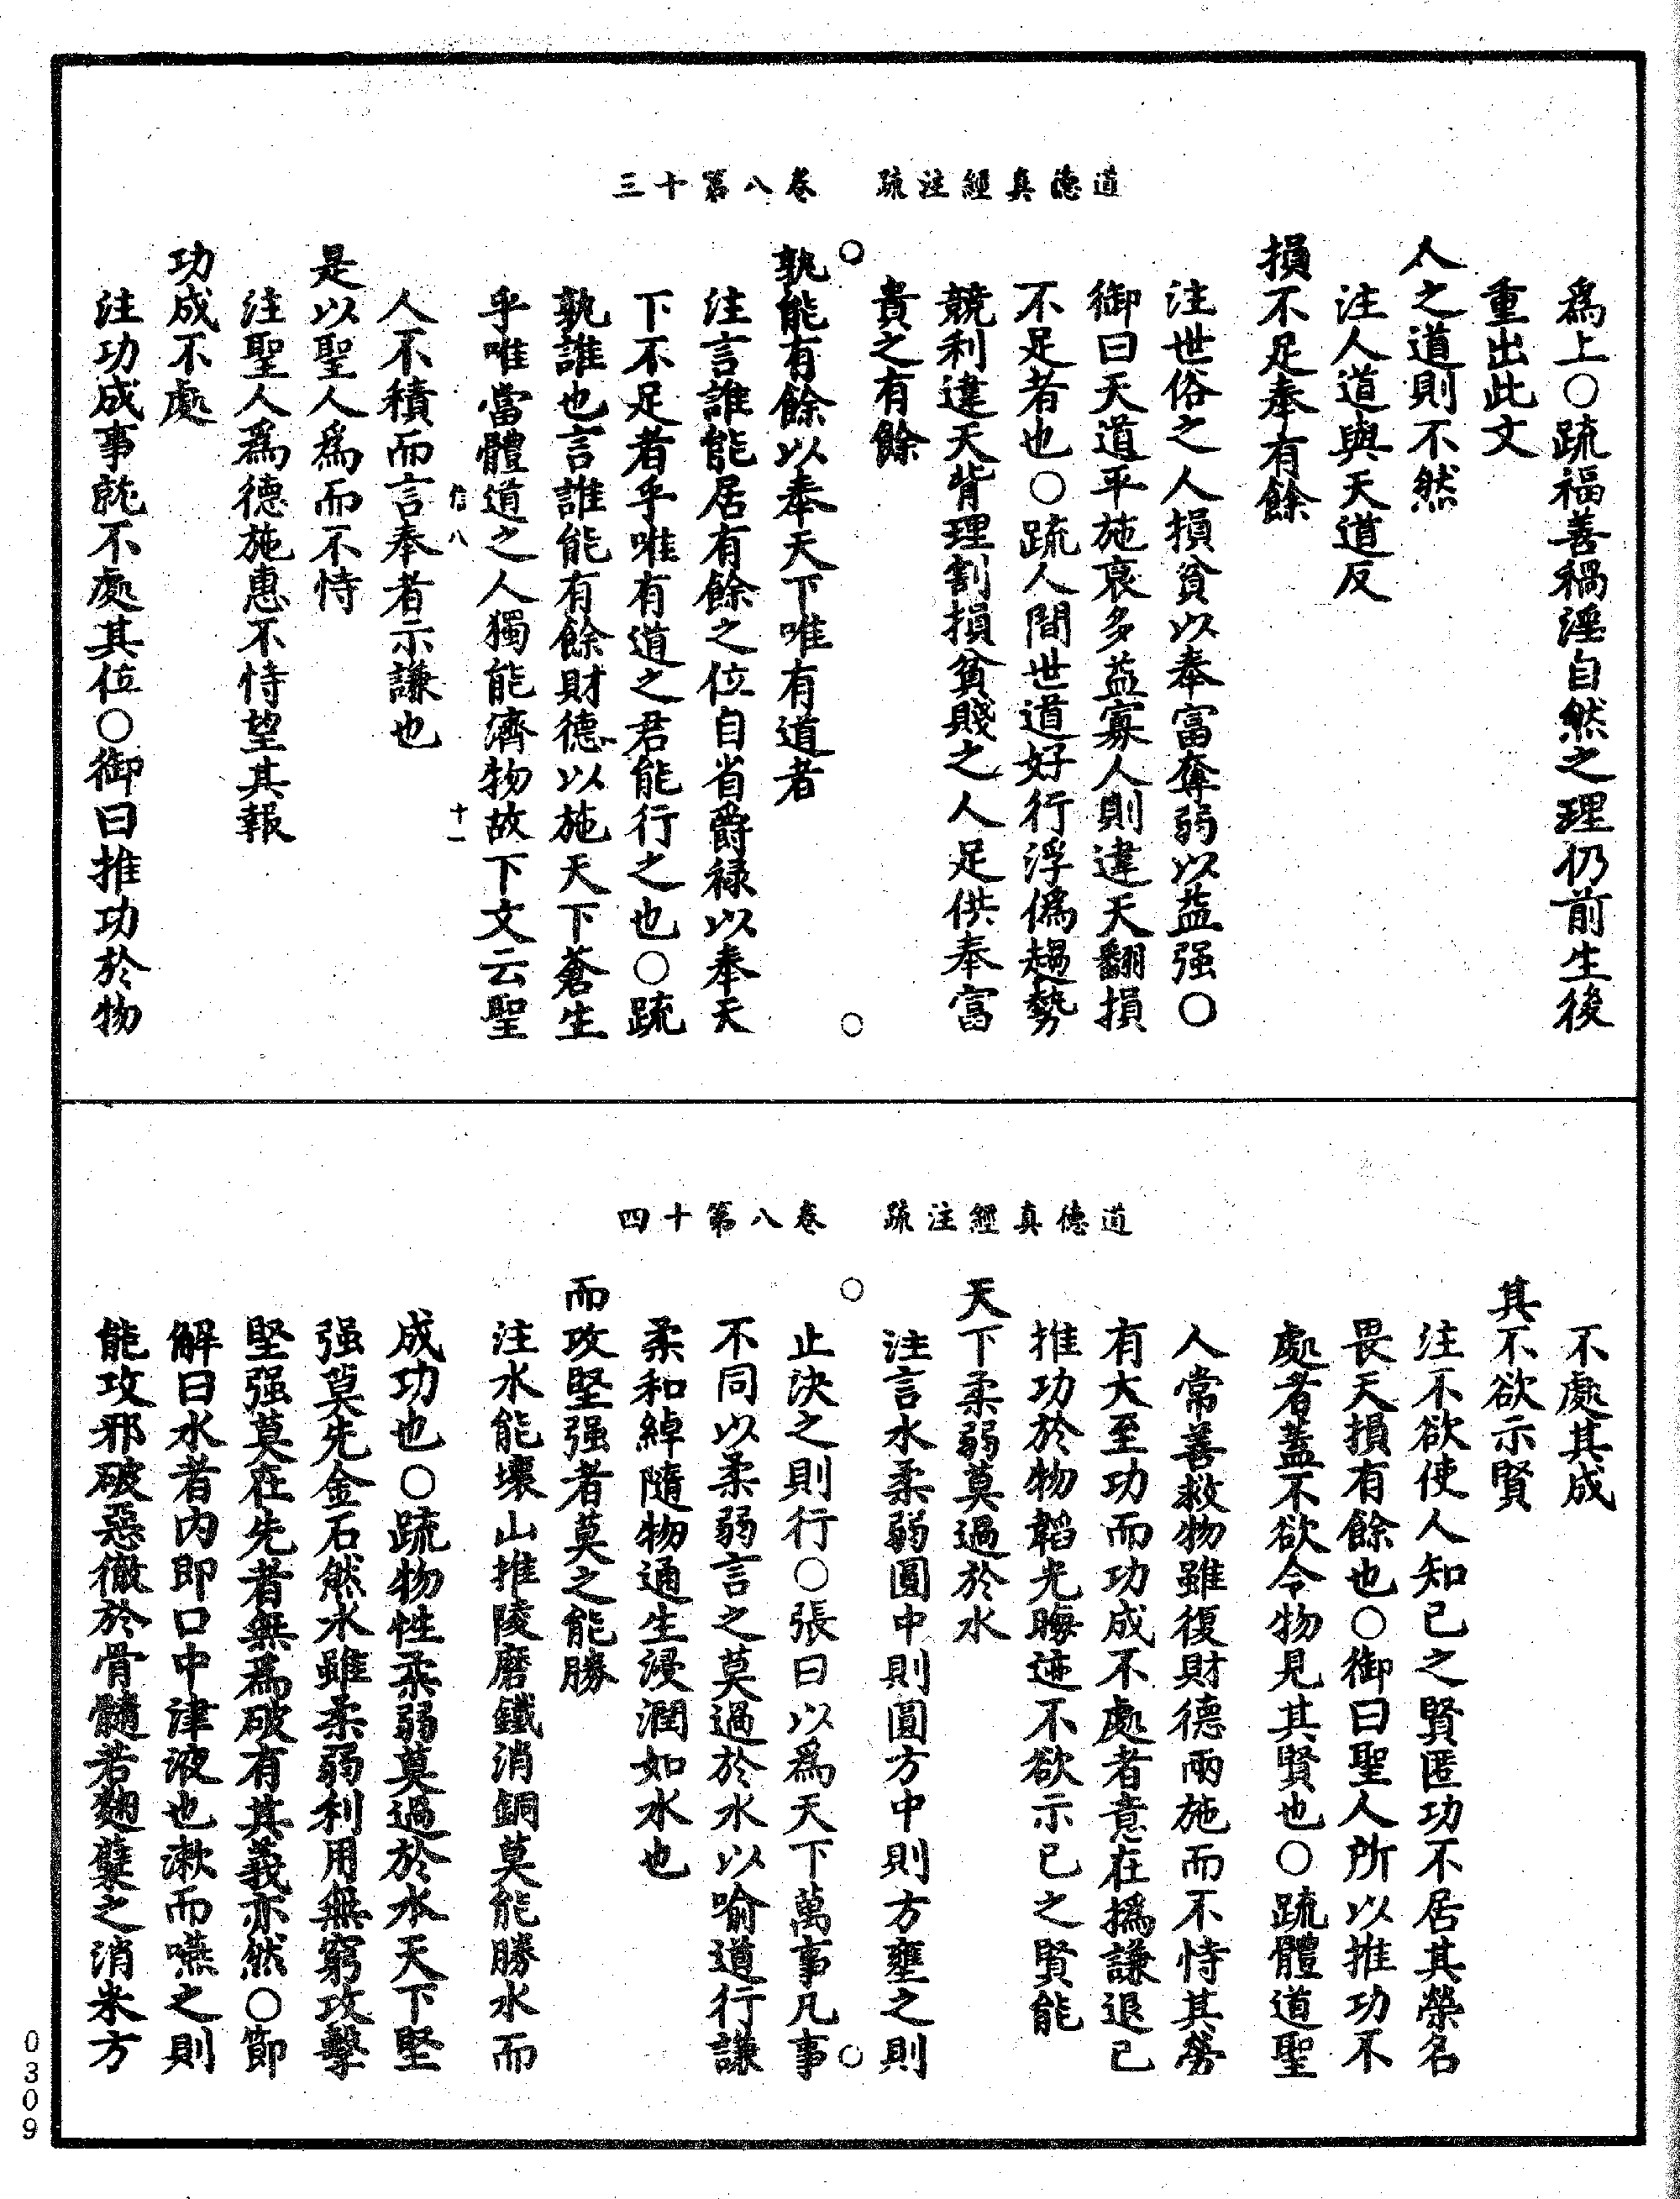 道德真經注疏　卷八第十三
爲上○疏福善禍淫自然之理仍前生後
重出此文
人之道則不然
注人道與天道反
損不足奉有餘
注世俗之人損貧以奉富奪弱以益强○
御曰天道平施裒多益寡人則違天翻損
不足者也○疏人間世道好行浮僞趨勢
競利違天背理割損貧賤之人足供奉富
貴之有餘
○　○
孰能有餘以奉天下唯有道者
注言誰能居有餘之位自省爵禄以奉天
下不足者乎唯有道之君能行之也○疏
孰誰也言誰能有餘財德以施天下蒼生
乎唯當體道之人獨能濟物故下文云聖
信八　十一
人不積而言奉者示謙也
是以聖人爲而不恃
注聖人爲德施惠不恃望其報
功成不處
注功成事就不處其位○御曰推功於物
道德真經注疏　卷八第十四
不處其成
其不欲示賢
注不欲使人知己之賢匿功不居其榮名
畏天損有餘也○御曰聖人所以推功不
處者蓋不欲令物見其賢也○疏體道聖
人常善救物雖復財德兩施而不恃其勞
有大至功而功成不處者意在撝謙退己
推功於物韜光晦迹不欲示己之賢能
天下柔弱莫過於水
注言水柔弱圓中則圓方中則方壅之則
○　○
止決之則行○張曰以爲天下萬事凡事
不同以柔弱言之莫過於水以喻道行謙
柔和綽隨物通生浸潤如水也
而攻堅强者莫之能勝
注水能壞山推陵磨鐵消銅莫能勝水而
成功也○疏物性柔弱莫過於水天下堅
强莫先金石然水雖柔弱利用無窮攻擊
堅强莫在先者無爲破有其義亦然○節
解曰水者内即口中津液也漱而嚥之則
能攻邪破惡徹於骨髓若麴糵之消米方
0309